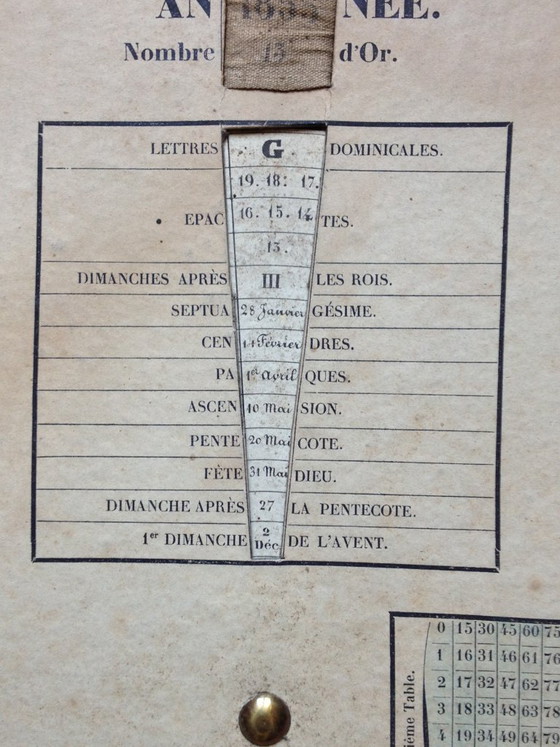 AN NÉE.
Nombre 15 d'Or.
LETTRES G DOMINICALES.
19. 18: 17.
EPAC 16. 15. 14. TES.
13.
DIMANCHES APRÈS III LES ROIS.
SEPTUA 28 Janvier GÉSIME.
CEN 14 Février DRES.
PA 1er avril QUES.
ASCEN 10 Mai SION.
PENTE 20 Mai COTE.
FÊTE 31 Mai DIEU.
DIMANCHE APRÈS 27 LA PENTECOTE.
1er DIMANCHE 2 Déc DE L'AVENT.
ième Table.
0 15 30 45 60 75
1 16 31 46 61 76
2 17 32 47 62 77
3 18 33 48 63 78
4 19 34 49 64